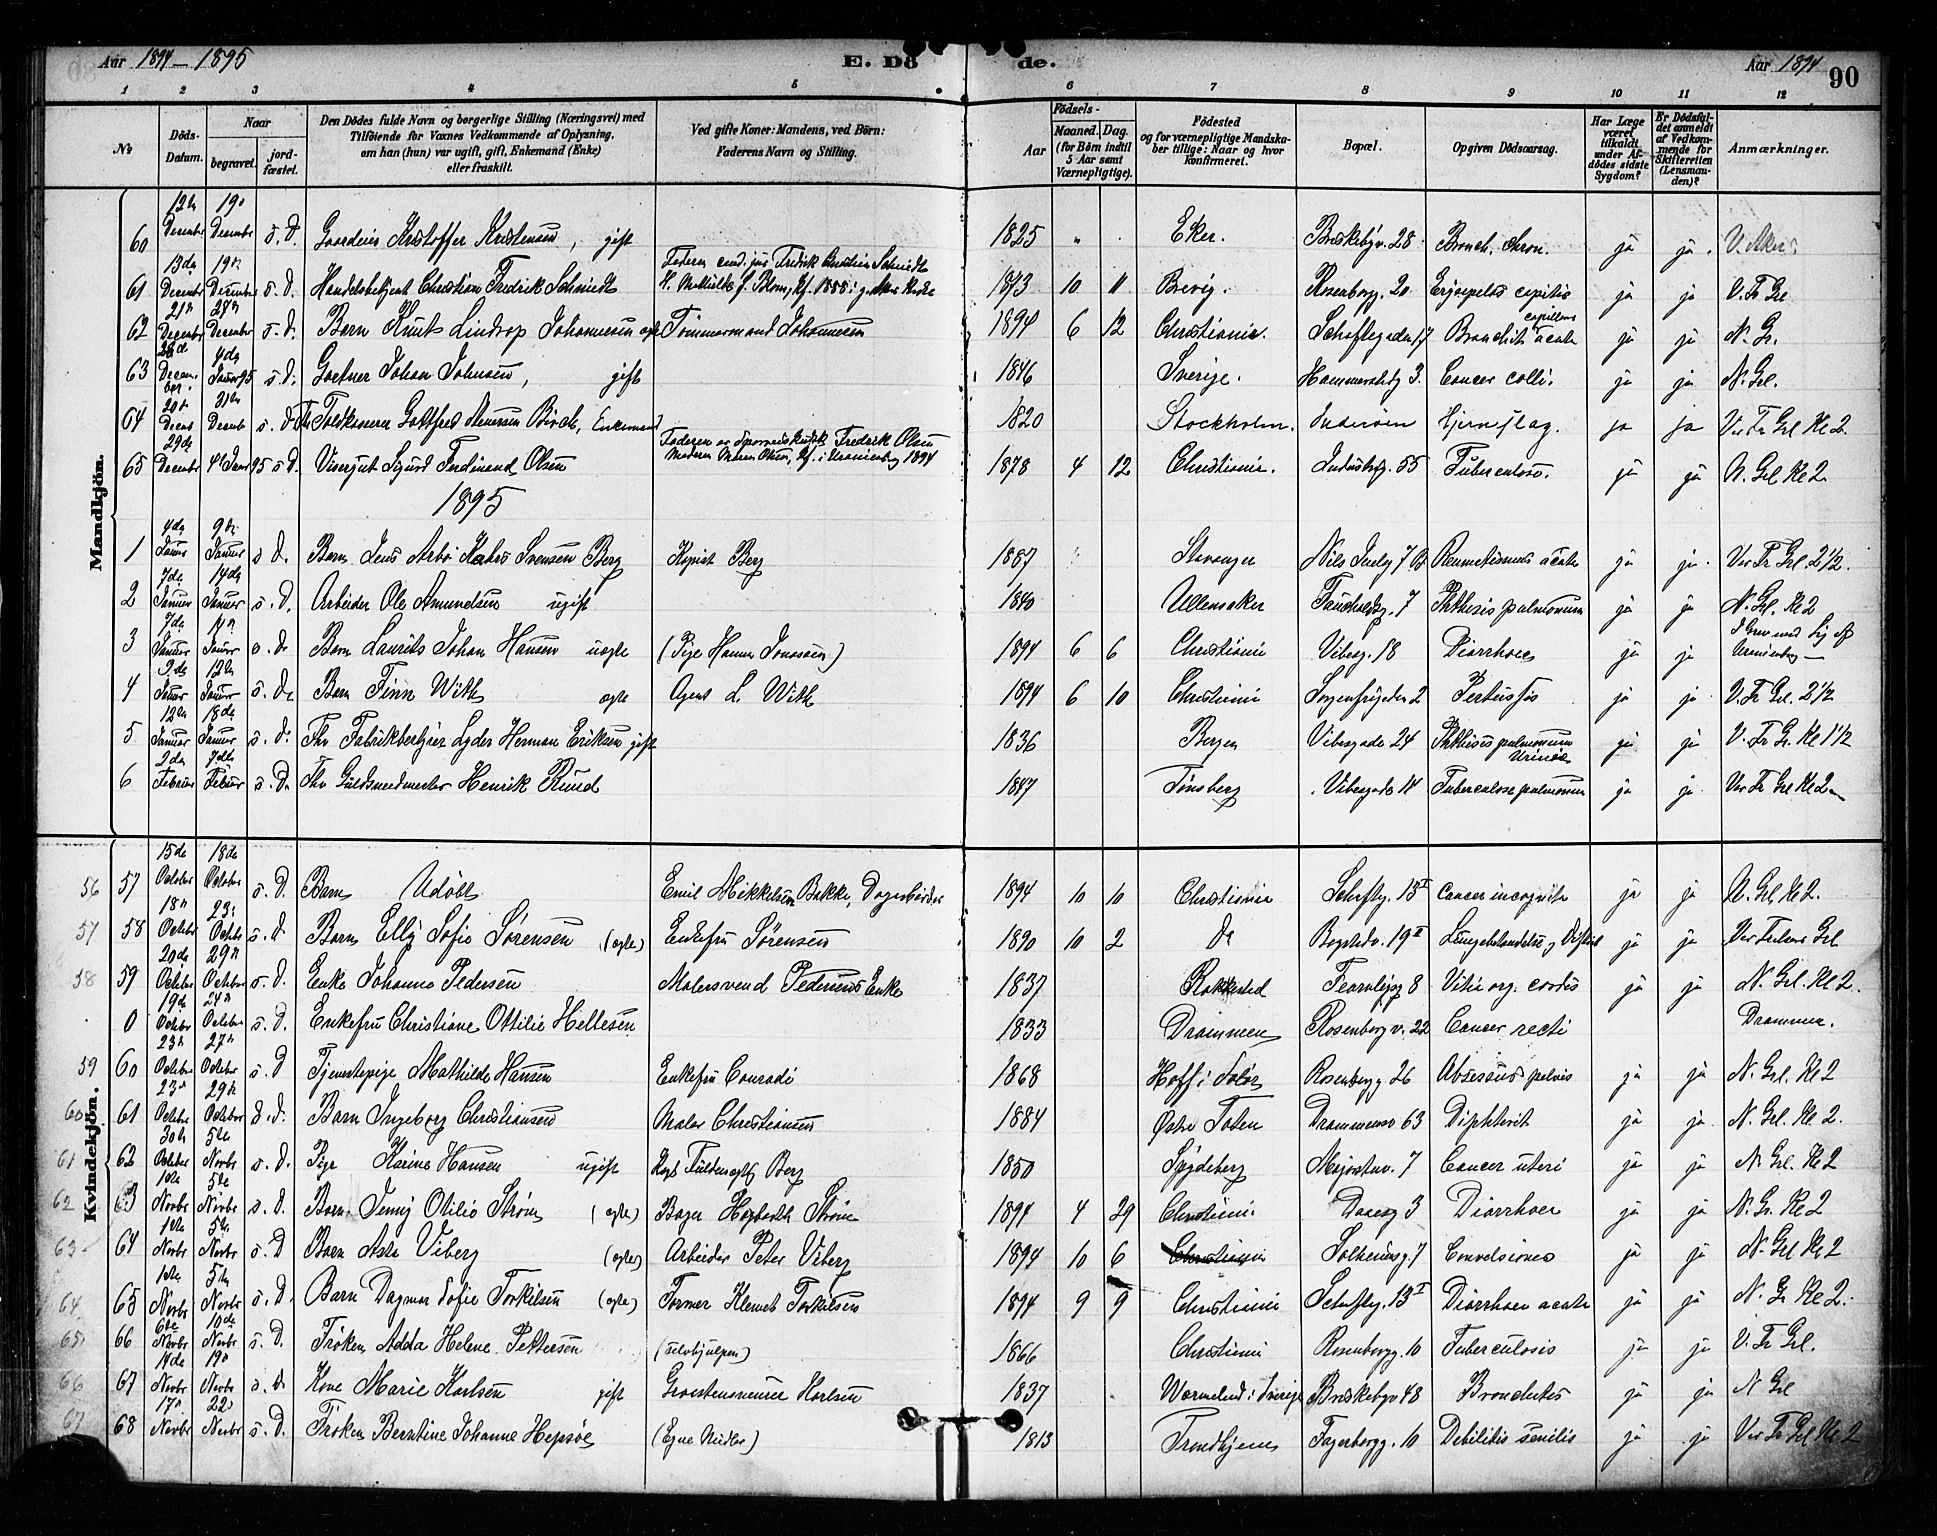 Aar 1894 – 1895 E. Dö de. Aar 1894 90
1 2 3 4 5 6 7 8 9 10 11 12
No Döds-Datum. Naar begravet. jord-fæstet. Den Dödes fulde Navn og borgerlige Stilling (Næringsvei) med Tilföiende for Voxnes Vedkommende af Oplysning, om han (hun) var ugift, gift, Enkemand (Enke) eller fraskilt. Ved gifte Koner: Mandens, ved Börn: Faderens Navn og Stilling. Födsels- Aar Maaned. Dag. (for Börn indtil 5 Aar samt Værnepligtige). Födested og for værnepligtige Mandskaber tillige: Naar og hvor Konfirmeret. Bopæl. Opgiven Dödsaarsag. Har Læge været tilkaldt under Afdödes sidste Sygdom? Er Dödsfaldet anmeldt af Vedkommende for Skifteretten (Lensmanden)? Anmærkninger.
Mandkjön.
60 12te Decembr 19de Decembr s. D. Gaardeier Kristoffer Kristensen, gift 1825 Eker. Briskebyv. 28 Bronch. chron. ja ja. V. Aker.
61 13de Decembr 19de Decembr s. D. Handelsbetjent Christian Fredrik Schmidt Faderen cand. jur. Fredrik Christian Schmidt 1873 10 11 Brevig. Rosenborgg. 20 Erysipelas capitis ja ja V. Fr Grl
62 21de Decembr 27de Decembr s. d. Barn Knut Lindrop Johannesen ægte Tømmermand Johannesen 1894 6 12 Christiania. Schaftegaden 17 Bronchit. capillær acuta ja ja N. Gr.
63 28de December 4de Januar 95 s. d. Gartner Johan Johnsen, gift 1846 Sverige. Hammerstadg 3. Cancer colli. ja ja N. Grl.
64 20de Decb 31te Decemb s. d. Fh Toldkasserer Gottfred Birch, Enkemand 1820 Stockholm. Inderøen Hjerneslag. ja ja Vor Fr Grl Kl 2.
65 29de Decembr 4de Januar 95 s. D. Visergut Sigurd Ferdinand Olsen Faderen er Sporveiskusk Fredrik Olsen Moderen Maren Olsen, Kf. i Uranienborg 1894 1878 4 12 Christiania. Industrig. 55 Tuberculose. ja ja N. Grl Kl 2
1895
1 4de Januar 9de Januar s D. Barn Jens Arbo Svensen Berg Kopist Berg 1887 Stavanger Nils Juelsg 7 B Reumatismus acuta ja ja Vor Fr Grl 2 1/2.
2 7de Januar 14de Januar s. D. Arbeider Ole Amundsen ugift 1840 Ullensaker 7 Phthisis pulmonum ja ja N. Grl. Kl 2
3 7de Januar Januar s. d. Barn Laurits Johan Hansen uægte (Pige Hanna Jonassen) 1894 6 6 Christiania Vibesg. 18 Diarrhoea ja ja Uranienborg
4 9de Januar 12te Januar s. d. Barn Finn With ægte Agent L. With 1894 6 10 Christiania Sorgenfrigaden 2 Pertussis ja ja V. Fr Grl 2 1/2
5 12te Januar 18de Januar s. d. Fhv Fabrikbestyrer Lyder Herman Eriksen gift 1836 Bergen Vibesgade 24 Phthisis pulmonum ja ja V. Fr Gr. Kl 1 1/2
6 2de Februar 7de Februar s. D. Fhv Guldsmedmester Henrik Ruud 1847 Tønsberg Vibesgade 14 Tuberculose pulmonum ja ja Vor Fr Grl Kl 2
Kvindekjön.
56 57 15de October 18de October s. D. Barn Udøbt Emil Mikkelsen Bakke, Dagarbeider 1894 10 10 Christiania Schafteg. 13 I Cancer incognita ja ja N. Grl Kl 2.
57 58 18de October 23de October s. d Barn Elly Sofie Sørensen (ægte) Enkefru Sørensen 1890 10 2 Do Bogstadv. 19 II Lungebetændelse og Difterit ja ja Vor Frelsers Grl
58 59 20de October 29de October s. D. Enke Johanne Pedersen Malersvend Pedersens Enke 1837 Rakkestad Fearnleysg 8 Vitie org. cordis ja ja N. Grl. Kl 2.
0 19de Octobr 24de October s. D. Enkefru Christiane Ottilie Hellesen 1833 Drammen Rosenborg v. 22 Cancer recti Drammen.
59 60 23de October 27de October s. D Tjenestepige Mathilde Hansen Enkefru Conradi 1868 Hoff i Solør Rosenborgg 26 Absessus pelvis ja ja N. Grl. Kl 2
60 61 23de October 29de October s. d. Barn Ingeborg Christiansen Maler Christiansen 1884 Østre Toten Drammensv 63 Diphterit ja ja N. Grl. Kl 2.
61 62 30te October 5te Novbr s. D. Pige Karine Hansen ugift Berg 1850 Spydeberg Majorstuv. 7 Cancer uteri ja ja N. Grl. Kl 2
62 63 1ste Novbr 5te Novbr s. D. Barn Jenny Otilie Strøm (ægte) Bager Hagbarth Strøm 1894 4 29 Christiania. Daaesg 3 Diarrhoea ja ja N. Gr. Kl 2
63 64 1ste Novbr 5te Novbr s. D Barn Asta Viberg (ægte) Arbeider Peter Viberg 1894 10 6 Christiania Solheimsg. 7 Convulsiones ja ja N. Grl Kl 2
64 65 1ste Novbr 5te Novbr s. D. Barn Dagmar Sofie Torkilsen (ægte) Former Klemet Torkilsen 1894 9 9 Christiania Schafteg. 13 I Diarrhoea acuta ja ja N. Gr Kl 2.
65 66 6te Novbr 10de Novbr s. D. Frøken Adda Helene Pettersen (selvhjulpen) 1866 Christiania Rosenborgg. 10 Tuberculosis ja ja V. Fr Grl.
66 67 14de Novbr 19de Novbr s. d. Kone Marie Karlsen gift Graastensmurer Karlsen 1837 Wærmeland i Sverige Briskebyv 48 Bronchites ja ja N Grl
67 68 17de Novbr 22de Novbr s. D. Frøken Berntine Johanne Hepsøe (Egne Midler) 1813 Trondhjem Fagerborgg. 10 Debilitis senilis ja ja Vor Fr Grl Kl 2